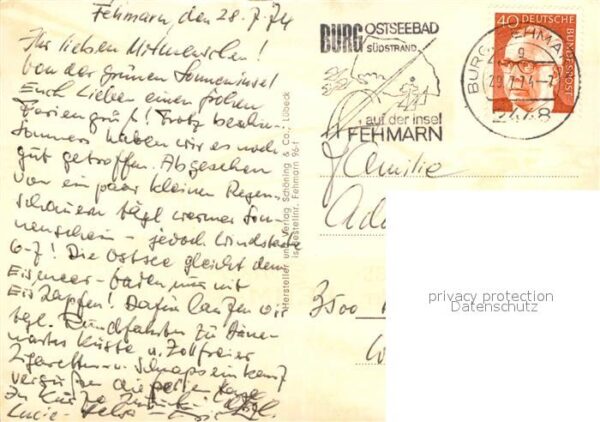 Fehmarn, den 28.7.74
Ihr lieben Mitmenschen!
Von der grünen Sonneninsel
Euch Lieben einen frohen
Feriengruß! Trotz
Sommers haben wir es noch
gut getroffen. Abgesehen
von ein paar kleinen Regen-
schauern tägl warmer Son-
nenschein - jedoch Windstärke
6-7! Die Ostsee gleicht dem
Eismeer - baden nur mit
Eiszapfen! Dafür laufen wir
tgl. Rundfahrten zu Däne-
marks Küste u. zollfreier
Zigaretten- u. Schnapseinkauf
In Kürze zurück
Lucie
Hersteller und Verlag Schöning & Co., Lübeck
Bestellnr. Fehmarn 96 f
BURG OSTSEEBAD
SÜDSTRAND
auf der insel
FEHMARN
40 DEUTSCHE
BUNDESPOST
BURG FEHMA
g
29.7.74-7
2448
Familie
3500
privacy protection
Datenschutz